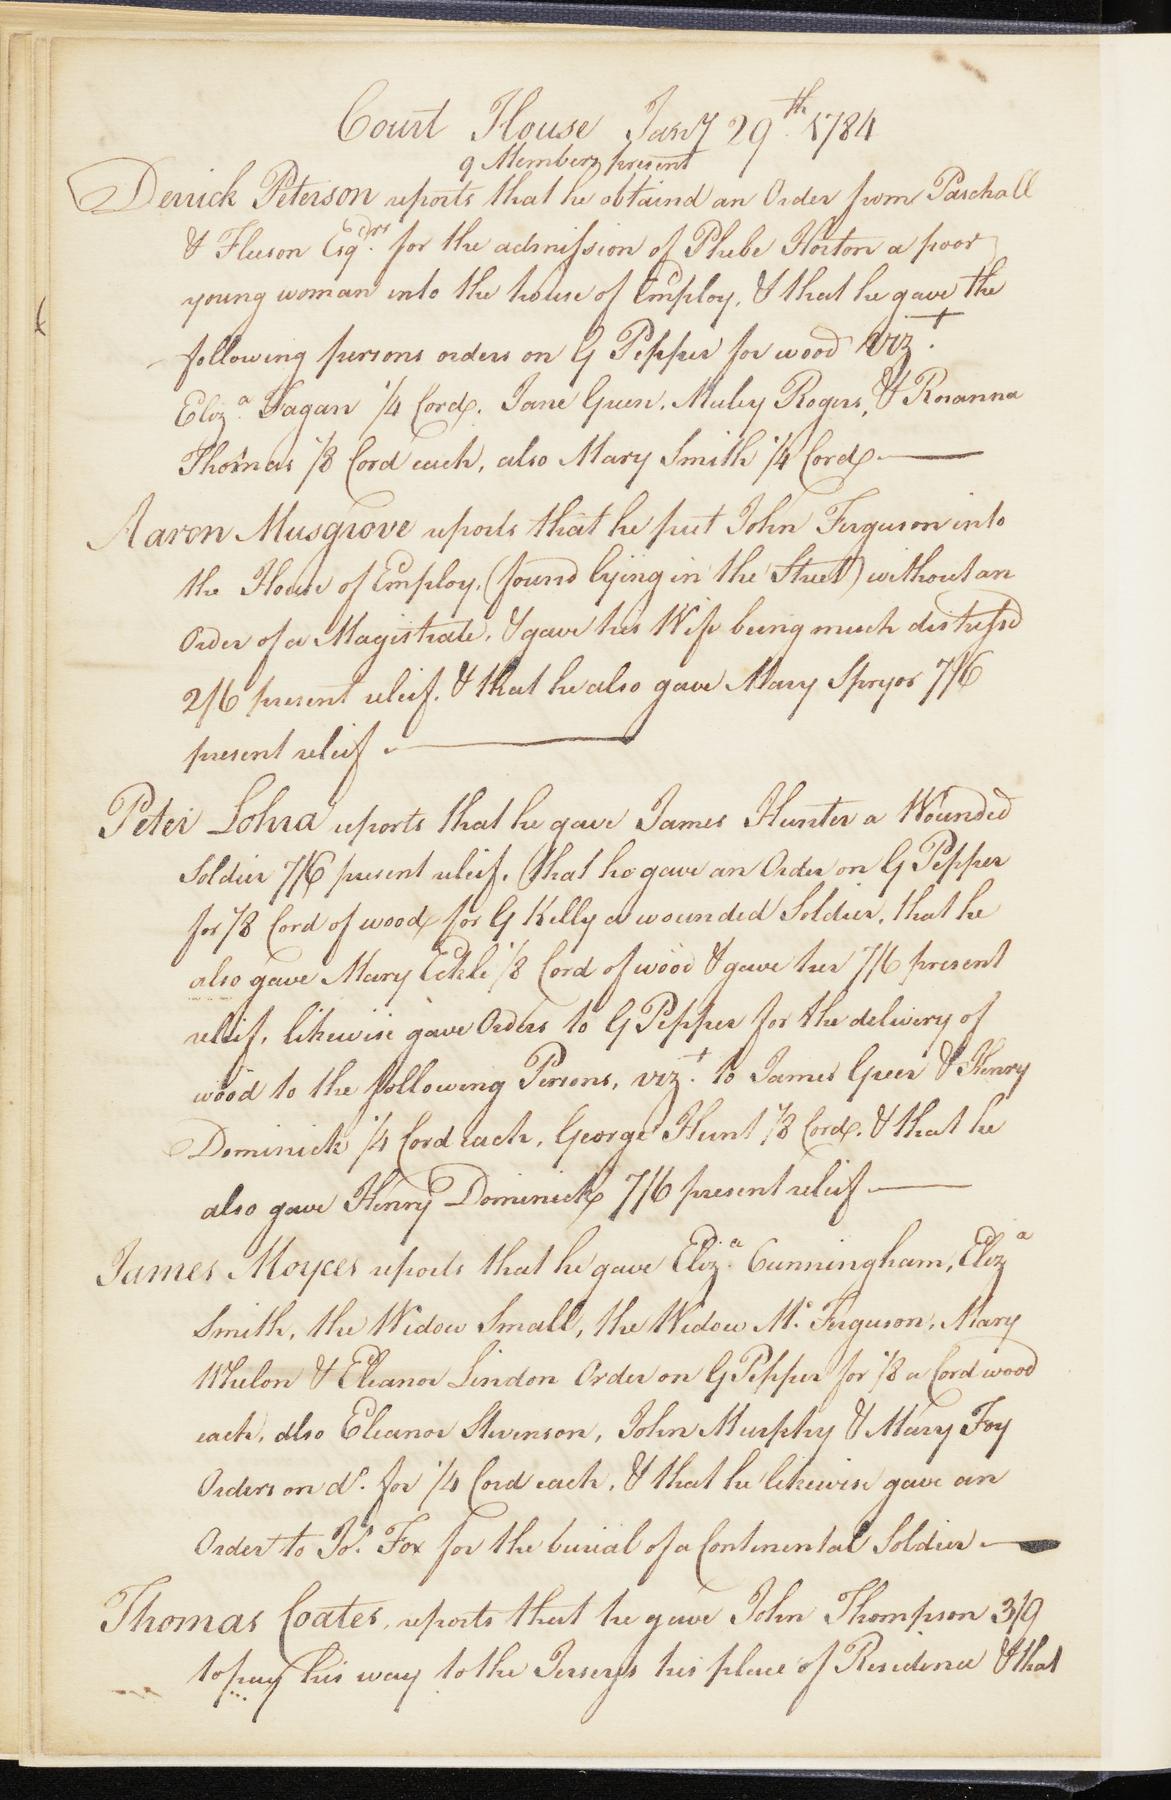 Court House Jany 29th 1784
9 Members present
Derrick Peterson reports that he obtaind an Order from Paschall
& Fleeson Esqrs. for the admission of Phebe Horton a poor
young woman into the house of Employ, & that he gave the
following persons orders on G Pepper for wood Vizt.
Eliza. Fagan 1/4 Cord, Jane Green, Muley Rogers, & Rosanna
Thomas 1/8 Cord each, also Mary Smith 1/4 Cord
Aaron Musgrove reports that he put John Ferguson into
the House of Employ, (found lying in the Street) without an
Order of a Magistrate, & gave his Wife being much distressd
2/6 present relief. & that he also gave Mary Spryor 7/6
present relief
Peter Lohra reports that he gave James Hunter a Wounded
Soldier 7/6 present relief, (that he gave an Order on G Pepper
for 1/8 Cord of wood for G Kelly a wounded Soldier, that he
also gave Mary Eckle 1/8 Cord of wood & gave her 7/6 present
relief, likewise gave Orders to G Pepper for the delivery of
wood to the following Persons, vizt. to James Greer & Henry
Dominick 1/4 Cord each, George Hunt 1/8 Cord. & that he
also gave Henry Dominick 7/6 present relief
James Moyces reports that he gave Eliza. Cunningham, Eliza
Smith, the Widow Small, the Widow Mc. Ferguson, Mary
Whelon & Eleanor Lindon Order on G Pepper for 1/8 a Cord wood
each, also Eleanor Stevenson, John Murphy & Mary Foy
Orders on do. for 1/4 Cord each, & that he likewise gave an
Order to Jos. Fox for the burial of a Continental Soldier
Thomas Coates, reports that he gave John Thompson 3/9
to pay his way to the Jerseys his place of Residence & that